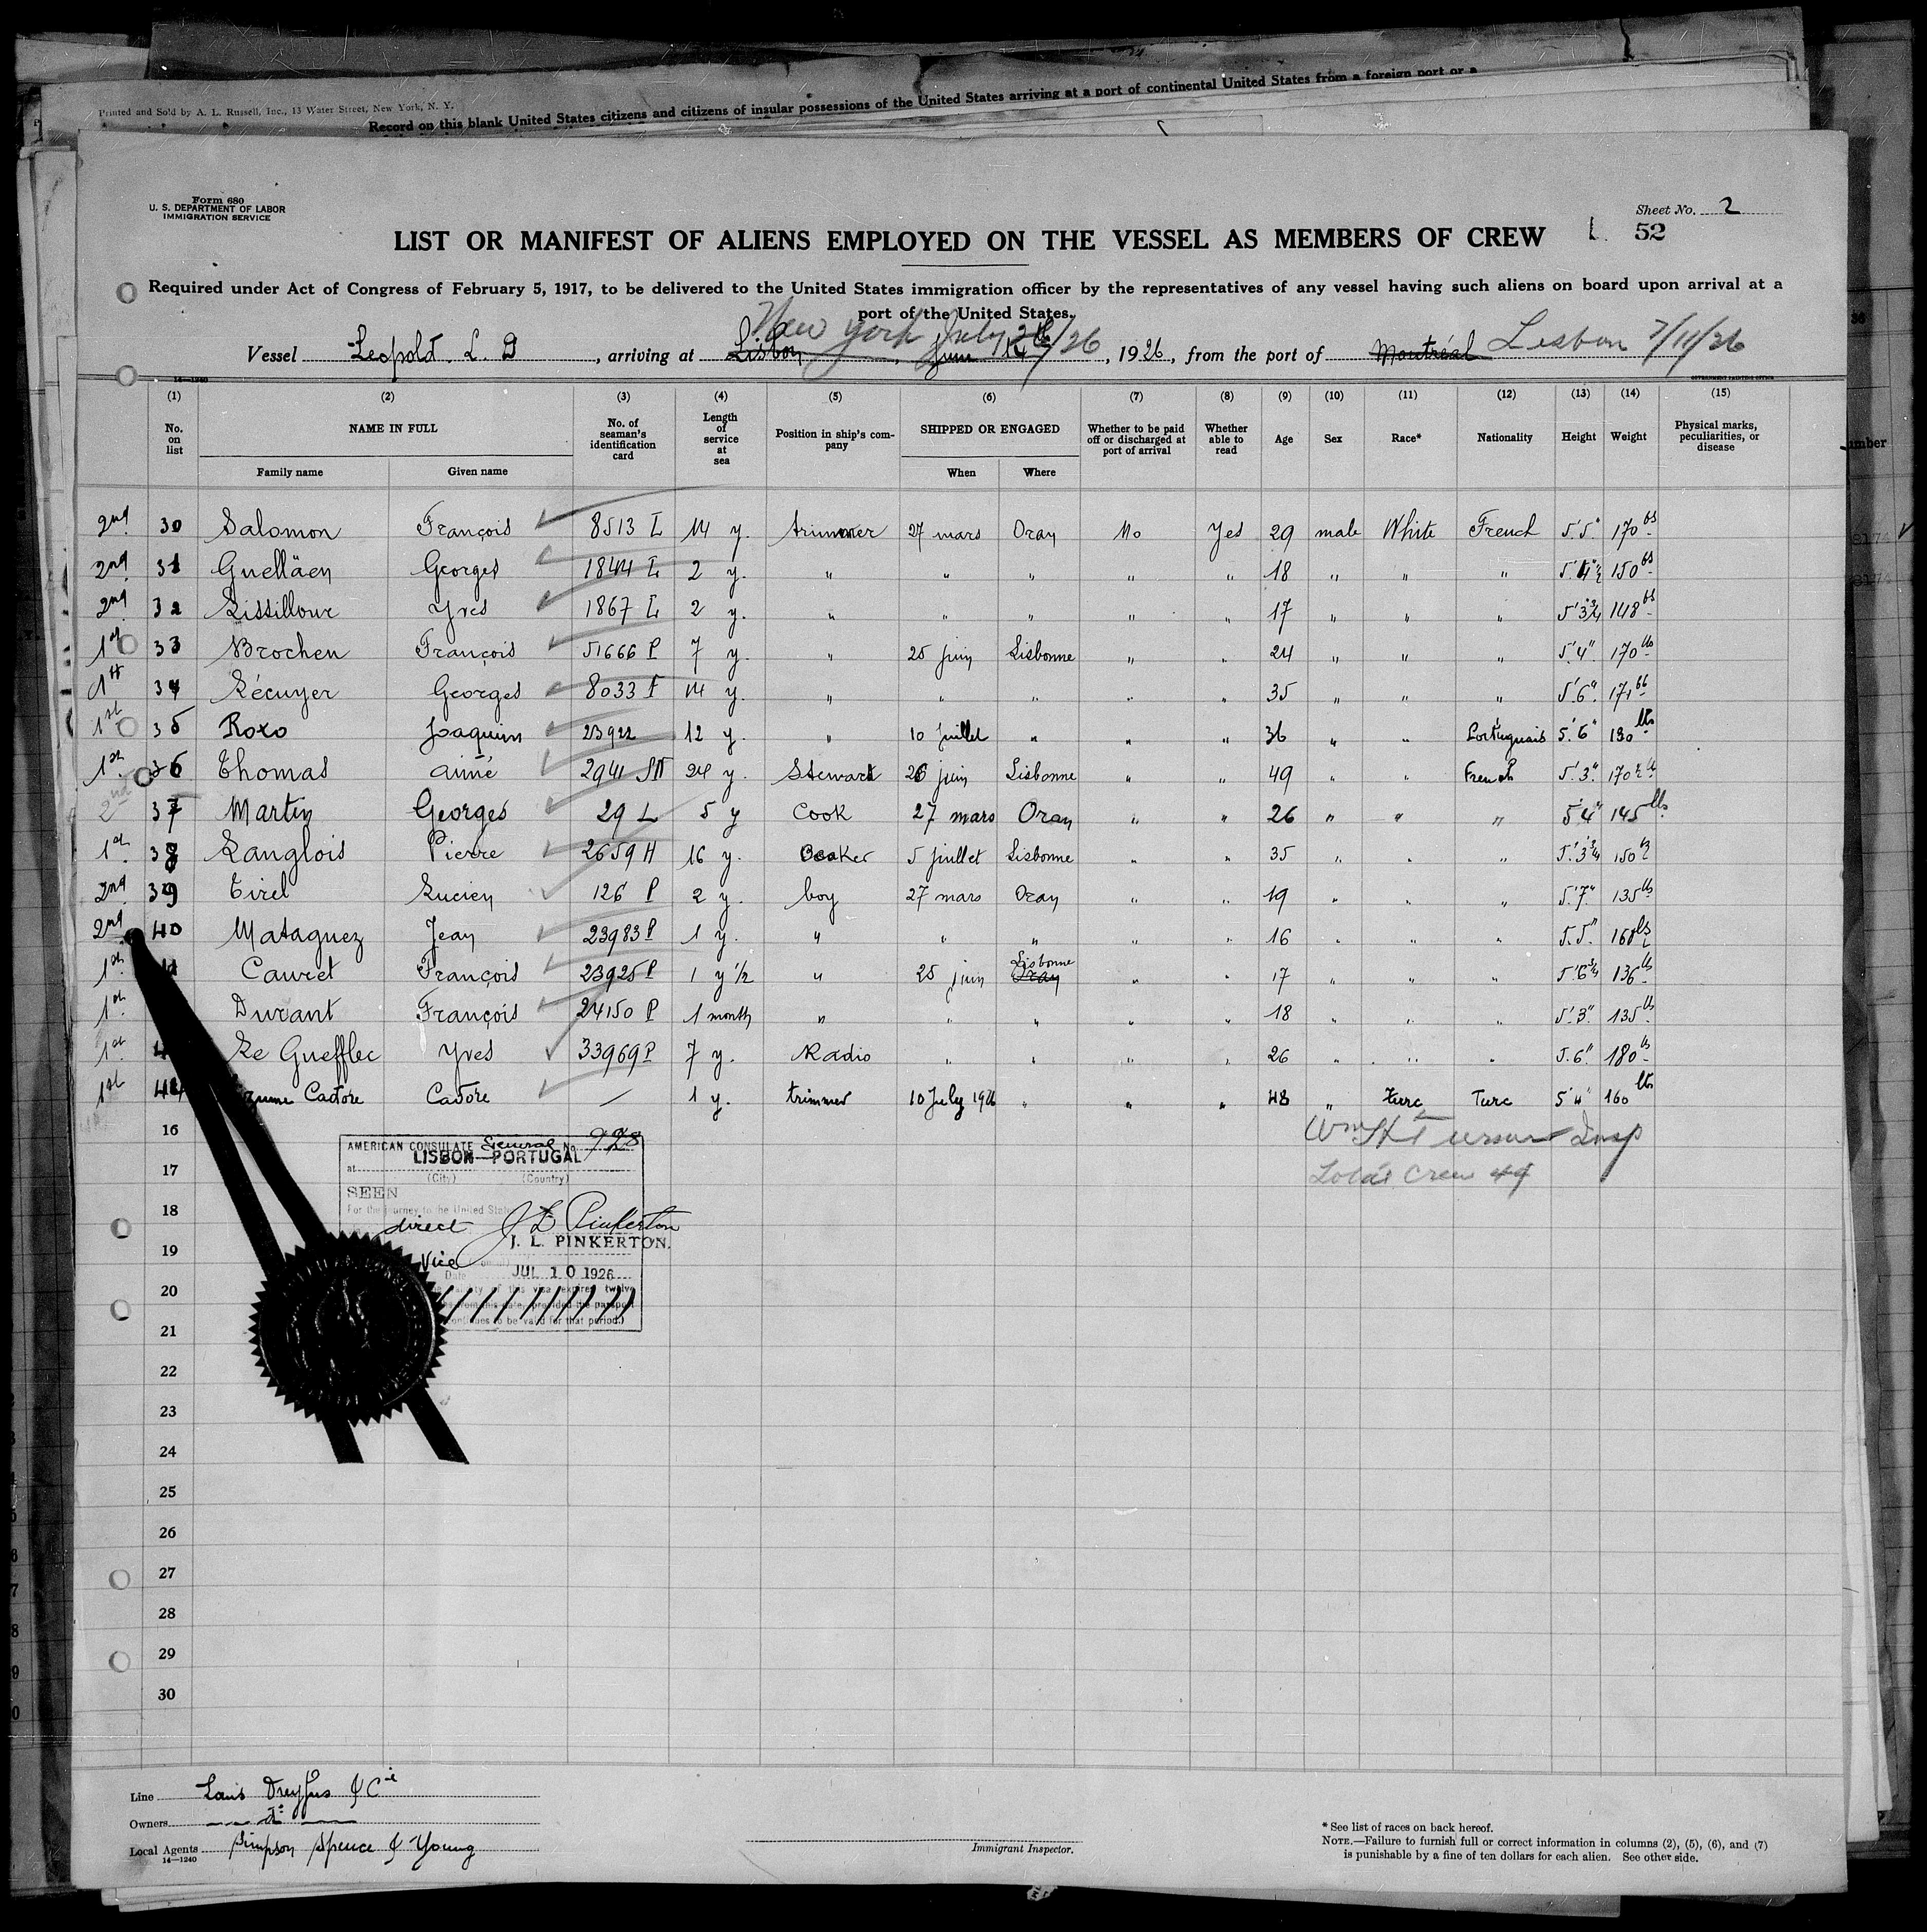 Printed and Sold by A. L. Russell, Inc., 13 Water Street, New York, N. Y.
Record on this blank United States citizens and citizens of insular possessions of the United States arriving at a port of continental United States from a foreign port or a
Form 680
U. S. DEPARTMENT OF LABOR
IMMIGRATION SERVICE
Sheet No. 2
LIST OR MANIFEST OF ALIENS EMPLOYED ON THE VESSEL AS MEMBERS OF CREW
52
Required under Act of Congress of February 5, 1917, to be delivered to the United States immigration officer by the representatives of any vessel having such aliens on board upon arrival at a
port of the United States.
New York July 26/26
Vessel Leopold L. D, arriving at Lisbon, 1926, from the port of Montréal Lisbon 7/11/26
14—1240
GOVERNMENT PRINTING OFFICE
(1) (2) (3) (4) (5) (6) (7) (8) (9) (10) (11) (12) (13) (14) (15)
No. on list NAME IN FULL No. of seaman's identification card Length of service at sea Position in ship's company SHIPPED OR ENGAGED Whether to be paid off or discharged at port of arrival Whether able to read Age Sex Race* Nationality Height Weight Physical marks, peculiarities, or disease
Family name Given name When Where
2nd 30 Salomon François 8513 L 14 y. trimmer 27 mars Oran No Yes 29 male White French 5'.5" 170 lbs
2nd 31 Guelläen Georges 1844 L 2 y. " " " " " 18 " " " 5'4"½ 150 lbs
2nd 32 Lissillour Yves 1867 L 2 y. " " " " " 17 " " " 5'3¾ 148 lbs
1st 33 Brochen François 51666 P 7 y. " 25 juin Lisbonne " " 24 " " " 5'.4" 170 lbs
1st 34 Lécuyer Georges 8033 F 14 y. " " " " " 35 " " " 5'6" 171 lbs
1st 35 Roxo Joaquim 23922 12 y. " 10 juillet " " " 36 " " Portuguais 5'.6" 130 lbs
1st 36 Thomas Aimé 2941 SM 24 y. Steward 26 juin Lisbonne " " 49 " " French 5'.3" 170 lbs
2nd 37 Martin Georges 29 L 5 y Cook 27 mars Oran " " 26 " " " 5'4" 145 lbs.
1st 38 Langlois Pierre 2659 H 16 y. 5 juillet Lisbonne " " 35 " " " 5'.3¾ 150 lbs
2nd 39 Tirel Lucien 126 P 2 y. boy 27 mars Oran " " 19 " " " 5'.7" 135 lbs
2nd 40 Mataguez Jean 23983 P 1 y. " " " " " 16 " " " 5'.5" 160 lbs
1st Cauret François 23925 P 1 y ½ " 25 juin Lisbonne Oran " " 17 " " " 5'6¾ 136 lbs
1st Durant François 24150 P 1 month " " " " " 18 " " " 5'.3" 135 lbs
1st 4 Le Guefflec Yves 33969 P 7 y. Radio " " " " 26 " " " 5.6" 180 lbs
1st 44 Cadore Cadore — 1 y. trimmer 10 July 1926 " " " 48 " Turc Turc 5'4" 160 lbs
16
Total Crew 44
AMERICAN CONSULATE General No. 928
at LISBON—PORTUGAL
(City) (Country)
17
SEEN
For the journey to the United States
18
direct J L Pinkerton
J. L. PINKERTON.
19
Vice
Date JUL 10 1926
20
validity of this visa expires twelve
from this date, provided the passport
continues to be valid for that period.)
21
22
23
24
25
26
27
28
29
30
Line Louis Dreyfus & Cie
Owners — do —
Local Agents Simpson Spence & Young
14—1240
Immigrant Inspector.
* See list of races on back hereof.
NOTE.—Failure to furnish full or correct information in columns (2), (5), (6), and (7)
is punishable by a fine of ten dollars for each alien. See other side.